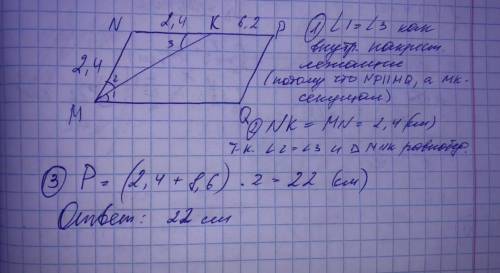 N 2,4 K 6,2 P
2,4
3
2
1
M
Q
① ∠1 = ∠3 как
внутр. накрест
лежащие
(потому что NP||MQ, а MK-
секущая)
② NK = MN = 2,4 (см)
т.к. ∠2 = ∠3 и △ MNK равнобедр.
③ P = (2,4 + 8,6) · 2 = 22 (см)
Ответ: 22 см